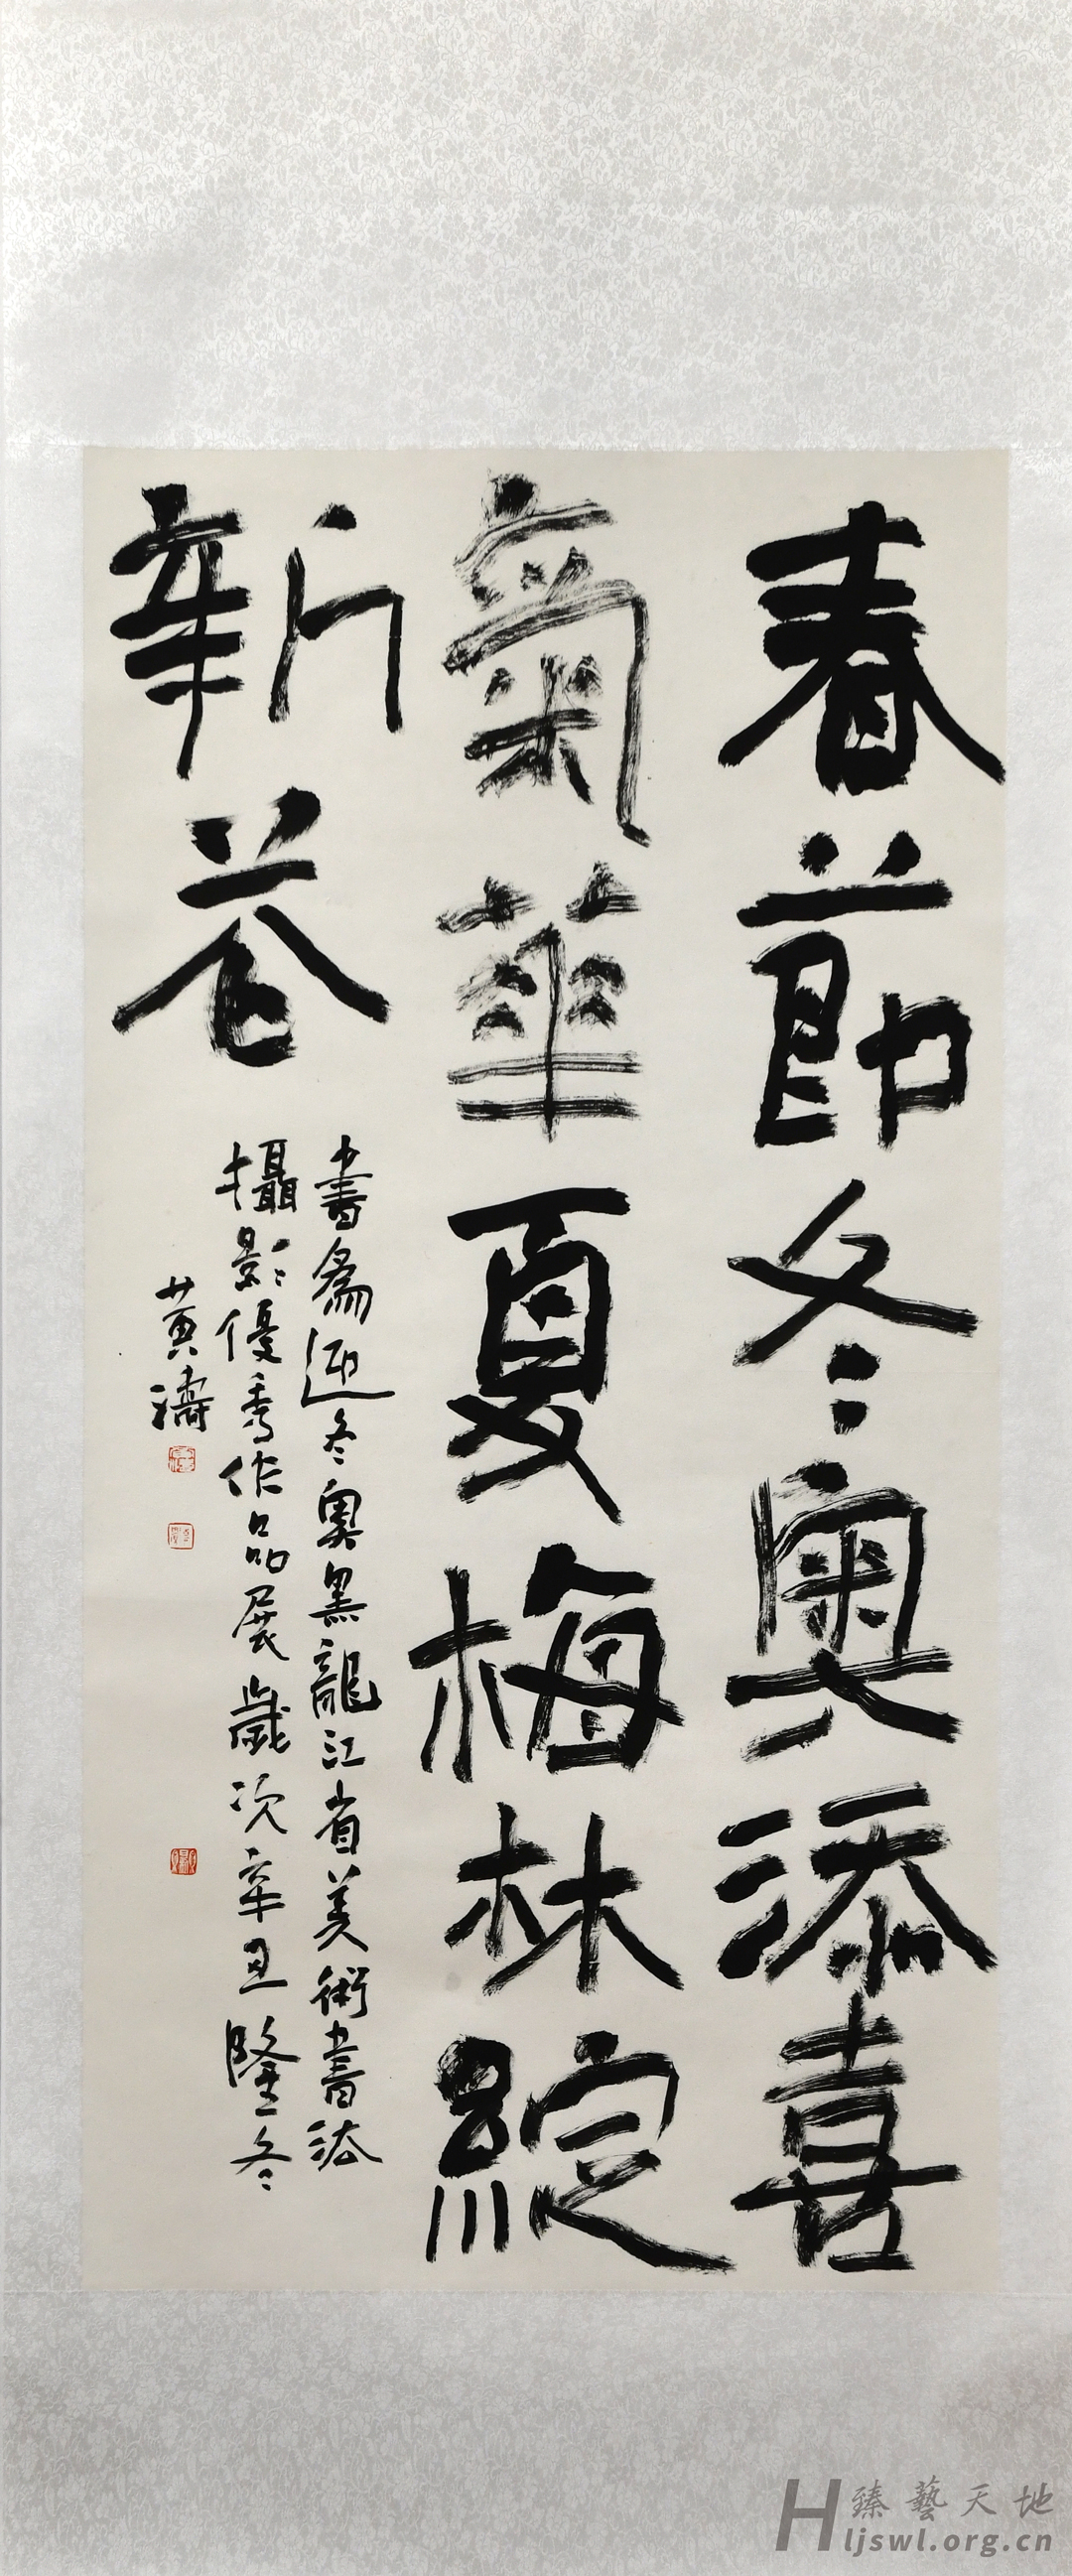 春節冬奧添喜
氣華夏梅林綻
新花
書為迎冬奧黑龍江省美術書法
攝影優秀作品展歲次辛丑隆冬
黄濤
H 臻藝天地
ljswl.org.cn